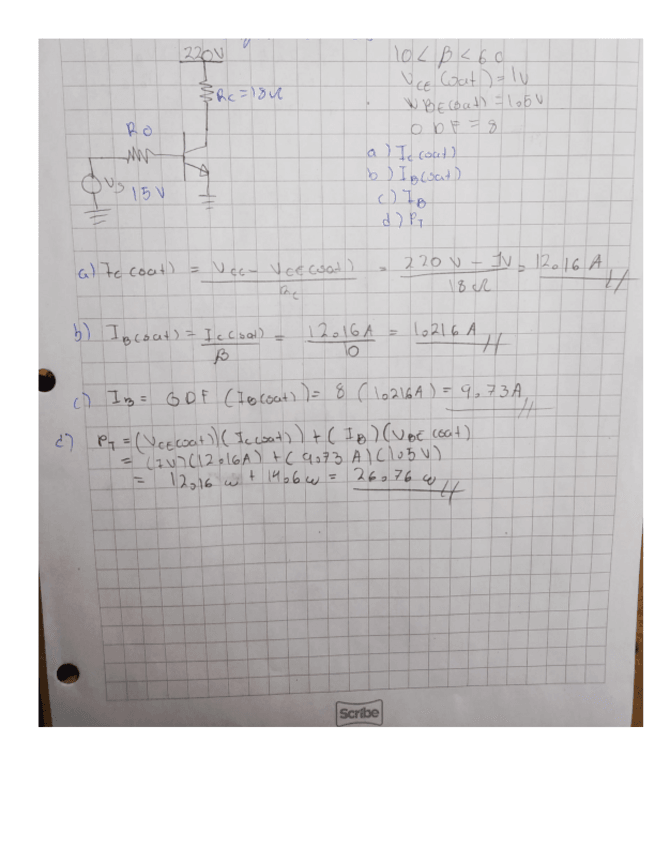 220V
10 < β < 60
VCE (sat) = 1V
Rc = 18Ω
VBE(sat) = 1.5V
ODF = 8
a) Ic (sat)
b) IB (sat)
VS
15V
c) IB
d) PT
a) Ic (sat) = Vcc - VCE(sat) / Rc = 220V - 1V / 18Ω = 12.16 A
b) IB(sat) = Ic(sat) / β = 12.16A / 10 = 1.216 A
c) IB = ODF (IB(sat)) = 8 (1.216A) = 9.73A
d) PT = (VCE(sat))(Ic(sat)) + (IB)(VBE (sat)
= (1V)(12.16A) + (9.73 A)(1.5V)
= 12.16 w + 14.6w = 26.76 w
Scribe